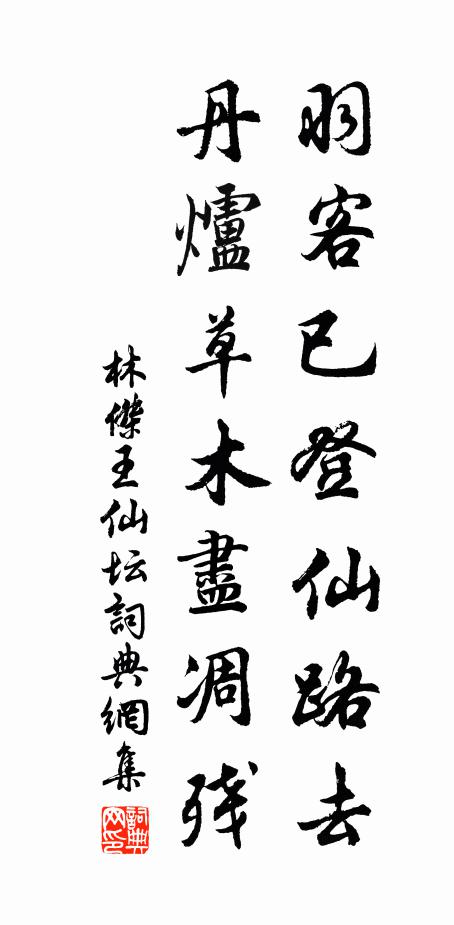 羽客已登仙路去
丹爐草木盡凋残
林傑王仙坛詞典網集
詞典網印